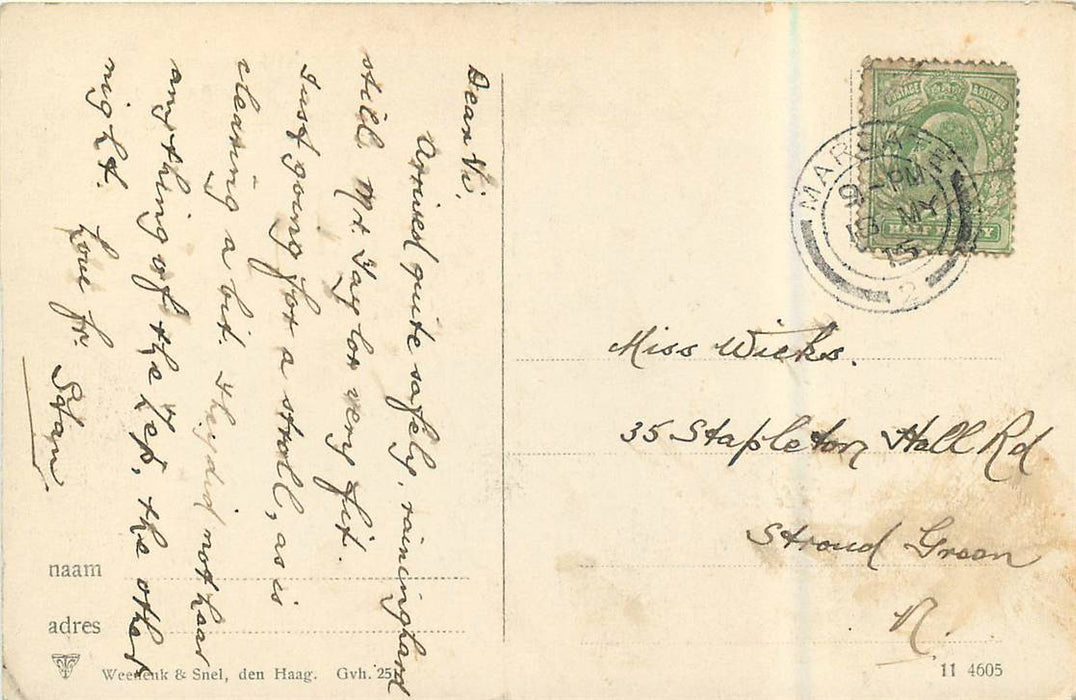 Dear Vi,
Arrived quite safely, raining hard
still. Mr. Taylor very fit.
Just going for a stroll, as is
clearing a bit. They did not hear
anything of the Zep, the other
night.
Love fr. Stan.
naam
adres
Weenenk & Snel, den Haag. Gvh. 251
POSTAGE & REVENUE
HALF PENNY
MARGATE
9-PM
MY
15
2
Miss Wicks.
35 Stapleton Hall Rd
Stroud Green
N.
11 4605